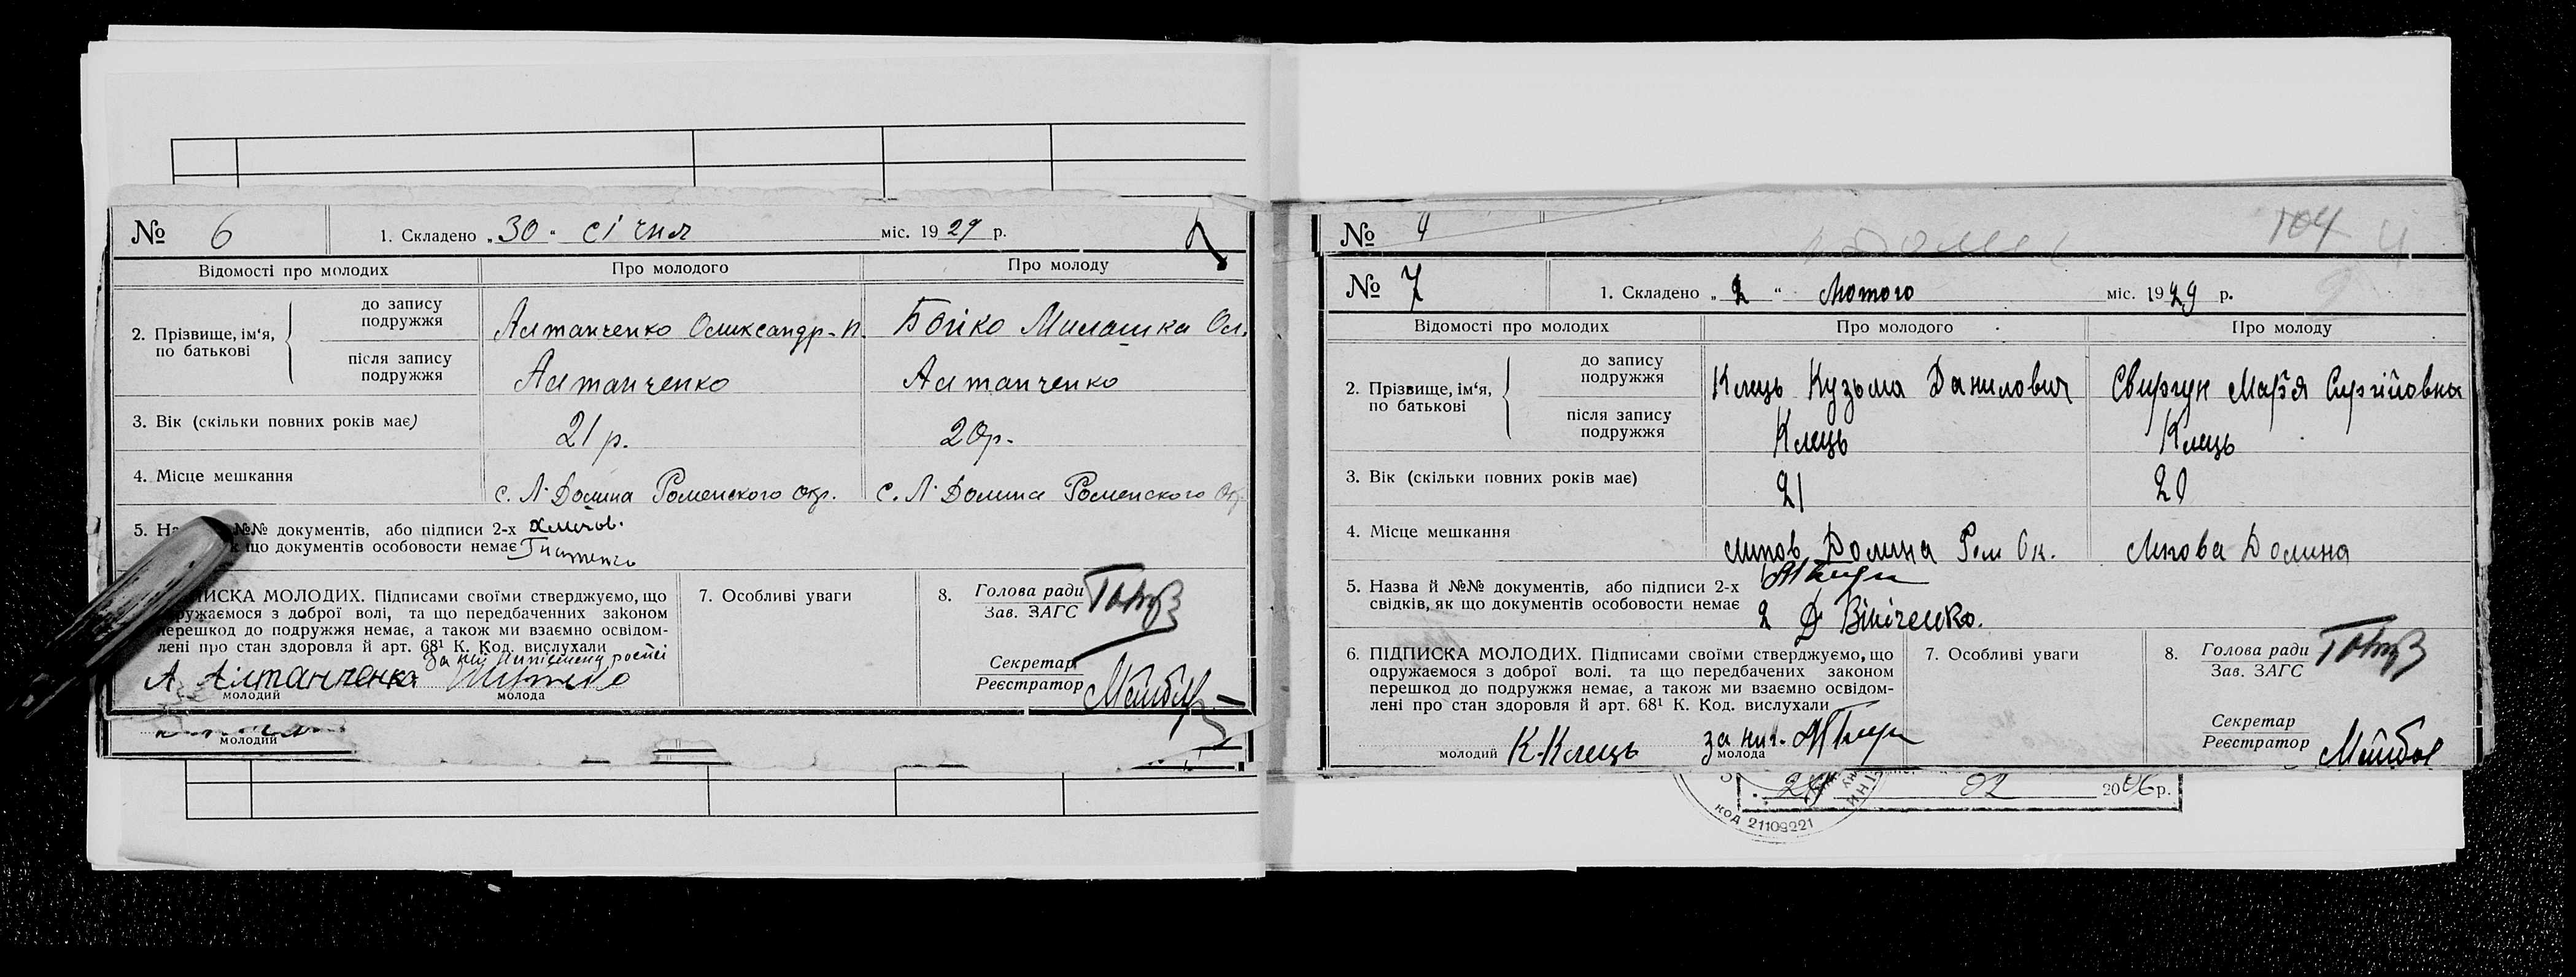 № 6 1. Складено „30“ січня міс. 1929 р.
Відомості про молодих Про молодого Про молоду
2. Прізвище, ім‘я, по батькові
до запису подружжя Алтанченко Олександр-П. Бойко Милашка Ол.
після запису подружжя Алтанченко Алтанченко
3. Вік (скільки повних років має) 21 р. 20 р.
4. Місце мешкання с. Л. Долина Роменского окр. с. Л. Долина Роменского Окр.
5. №№ документів, або підписи 2-х
що документів особовости немає
ПИСКА МОЛОДИХ. Підписами своїми стверджуємо, що
ружаємося з доброї волі, та що передбаченних законом
перешкод до подружжя немає, а також ми взаємно освідом-
лені про стан здоровля й арт. 68¹ К. Код. вислухали
А Алтанченка
молодий молода
7. Особливі уваги
8. Голова ради
Зав. ЗАГС
Секретар
Реєстратор
молодий
№ 4
104
№ 7 1. Складено „2“ Лютого міс. 1929 р.
Відомості про молодих Про молодого Про молоду
2. Прізвище, ім‘я, по батькові
до запису подружжя Клець Кузьма Данилович Свиргун Мар'я Сергіївна
після запису подружжя Клець Клець
3. Вік (скільки повних років має) 21 20
4. Місце мешкання Липов Долина Ром Ок. Липова Долина
5. Назва й №№ документів, або підписи 2-х
свідків, як що документів особовости немає 2 Д Вініченко.
6. ПІДПИСКА МОЛОДИХ. Підписами своїми стверджуємо, що
одружаємося з доброї волі. та що передбачених законом
перешкод до подружжя немає, а також ми взаємно освідом-
лені про стан здоровля й арт. 68¹ К. Код. вислухали
молодий К. Клець за нег.
молода
7. Особливі уваги
8. Голова ради
Зав. ЗАГС
Секретар
Реєстратор
02 2006 р.
код 21109221